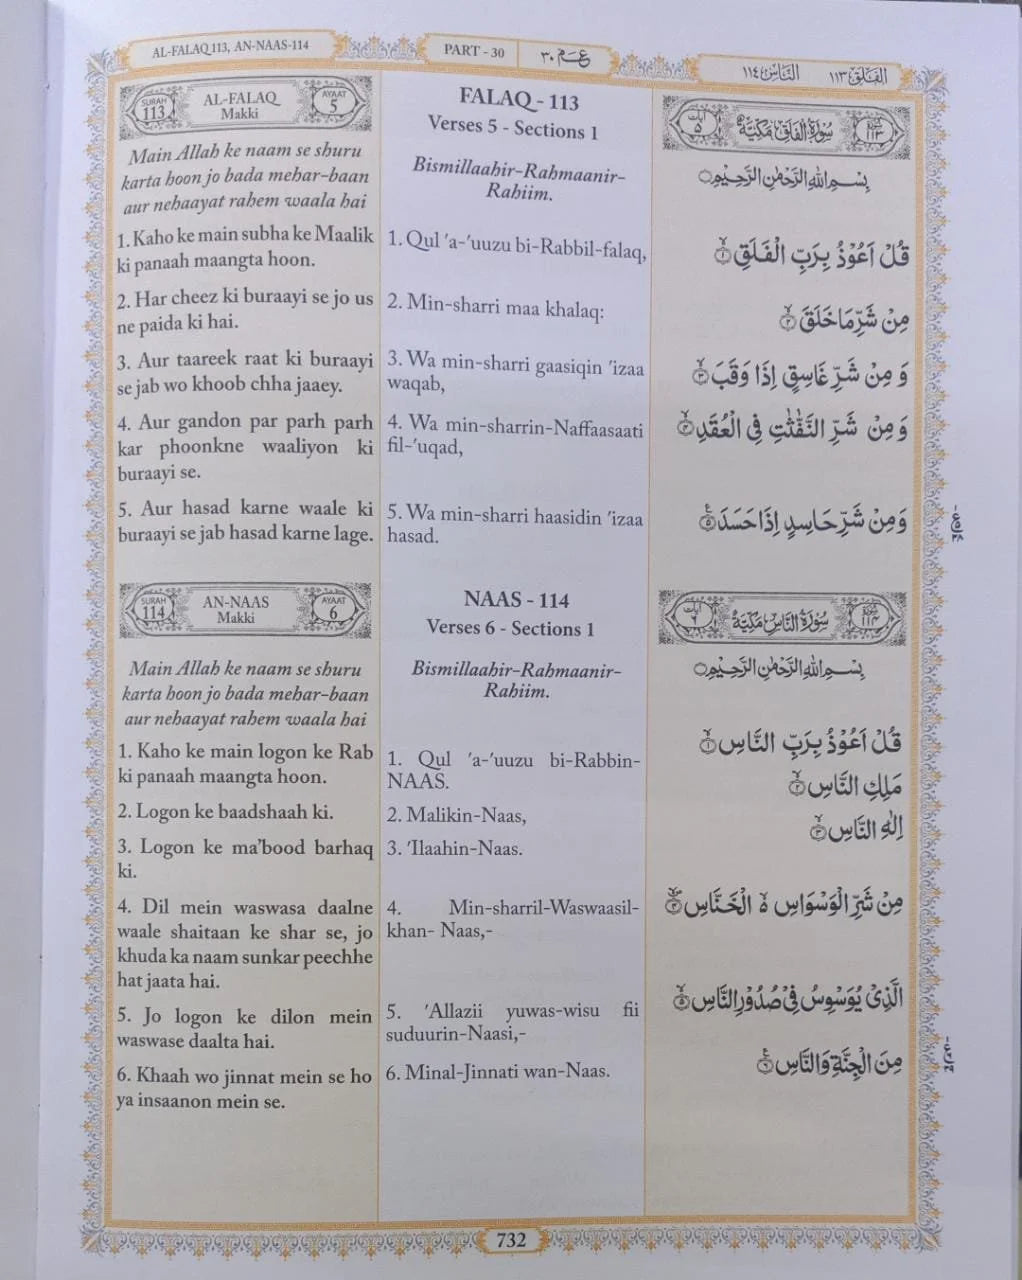 AL-FALAQ 113, AN-NAAS-114
PART - 30
عـم ٣٠
الناس ١١٤
الفلق ١١٣
SURAH
113
AL-FALAQ
Makki
AYAAT
5
Main Allah ke naam se shuru
karta hoon jo bada mehar-baan
aur nehaayat rahem waala hai
1. Kaho ke main subha ke Maalik
ki panaah maangta hoon.
2. Har cheez ki buraayi se jo us
ne paida ki hai.
3. Aur taareek raat ki buraayi
se jab wo khoob chha jaaey.
4. Aur gandon par parh parh
kar phoonkne waaliyon ki
buraayi se.
5. Aur hasad karne waale ki
buraayi se jab hasad karne lage.
SURAH
114
AN-NAAS
Makki
AYAAT
6
Main Allah ke naam se shuru
karta hoon jo bada mehar-baan
aur nehaayat rahem waala hai
1. Kaho ke main logon ke Rab
ki panaah maangta hoon.
2. Logon ke baadshaah ki.
3. Logon ke ma'bood barhaq
ki.
4. Dil mein waswasa daalne
waale shaitaan ke shar se, jo
khuda ka naam sunkar peechhe
hat jaata hai.
5. Jo logon ke dilon mein
waswase daalta hai.
6. Khaah wo jinnat mein se ho
ya insaanon mein se.
FALAQ - 113
Verses 5 - Sections 1
Bismillaahir-Rahmaanir-
Rahiim.
1. Qul 'a-'uuzu bi-Rabbil-falaq,
2. Min-sharri maa khalaq:
3. Wa min-sharri gaasiqin 'izaa
waqab,
4. Wa min-sharrin-Naffaasaati
fil-'uqad,
5. Wa min-sharri haasidin 'izaa
hasad.
NAAS - 114
Verses 6 - Sections 1
Bismillaahir-Rahmaanir-
Rahiim.
1. Qul 'a-'uuzu bi-Rabbin-
NAAS.
2. Malikin-Naas,
3. 'Ilaahin-Naas.
4. Min-sharril-Waswaasil-
khan- Naas,-
5. 'Allazii yuwas-wisu fii
suduurin-Naasi,-
6. Minal-Jinnati wan-Naas.
سورة ١١٣
سُوْرَةُ الْفَلَقِ مَكِّيَّةٌ
آيات ٥
بِسْمِ اللهِ الرَّحْمٰنِ الرَّحِيْمِ
قُلْ اَعُوْذُ بِرَبِّ الْفَلَقِ ١
مِنْ شَرِّ مَا خَلَقَ ٢
وَ مِنْ شَرِّ غَاسِقٍ اِذَا وَقَبَ ٣
وَ مِنْ شَرِّ النَّفّٰثٰتِ فِى الْعُقَدِ ٤
وَ مِنْ شَرِّ حَاسِدٍ اِذَا حَسَدَ ٥
سورة ١١٤
سُوْرَةُ النَّاسِ مَكِّيَّةٌ
آيات ٦
بِسْمِ اللهِ الرَّحْمٰنِ الرَّحِيْمِ
قُلْ اَعُوْذُ بِرَبِّ النَّاسِ ١
مَلِكِ النَّاسِ ٢
اِلٰهِ النَّاسِ ٣
مِنْ شَرِّ الْوَسْوَاسِ ە الْخَنَّاسِ ٤
الَّذِىْ يُوَسْوِسُ فِىْ صُدُوْرِ النَّاسِ ٥
مِنَ الْجِنَّةِ وَالنَّاسِ ٦
732